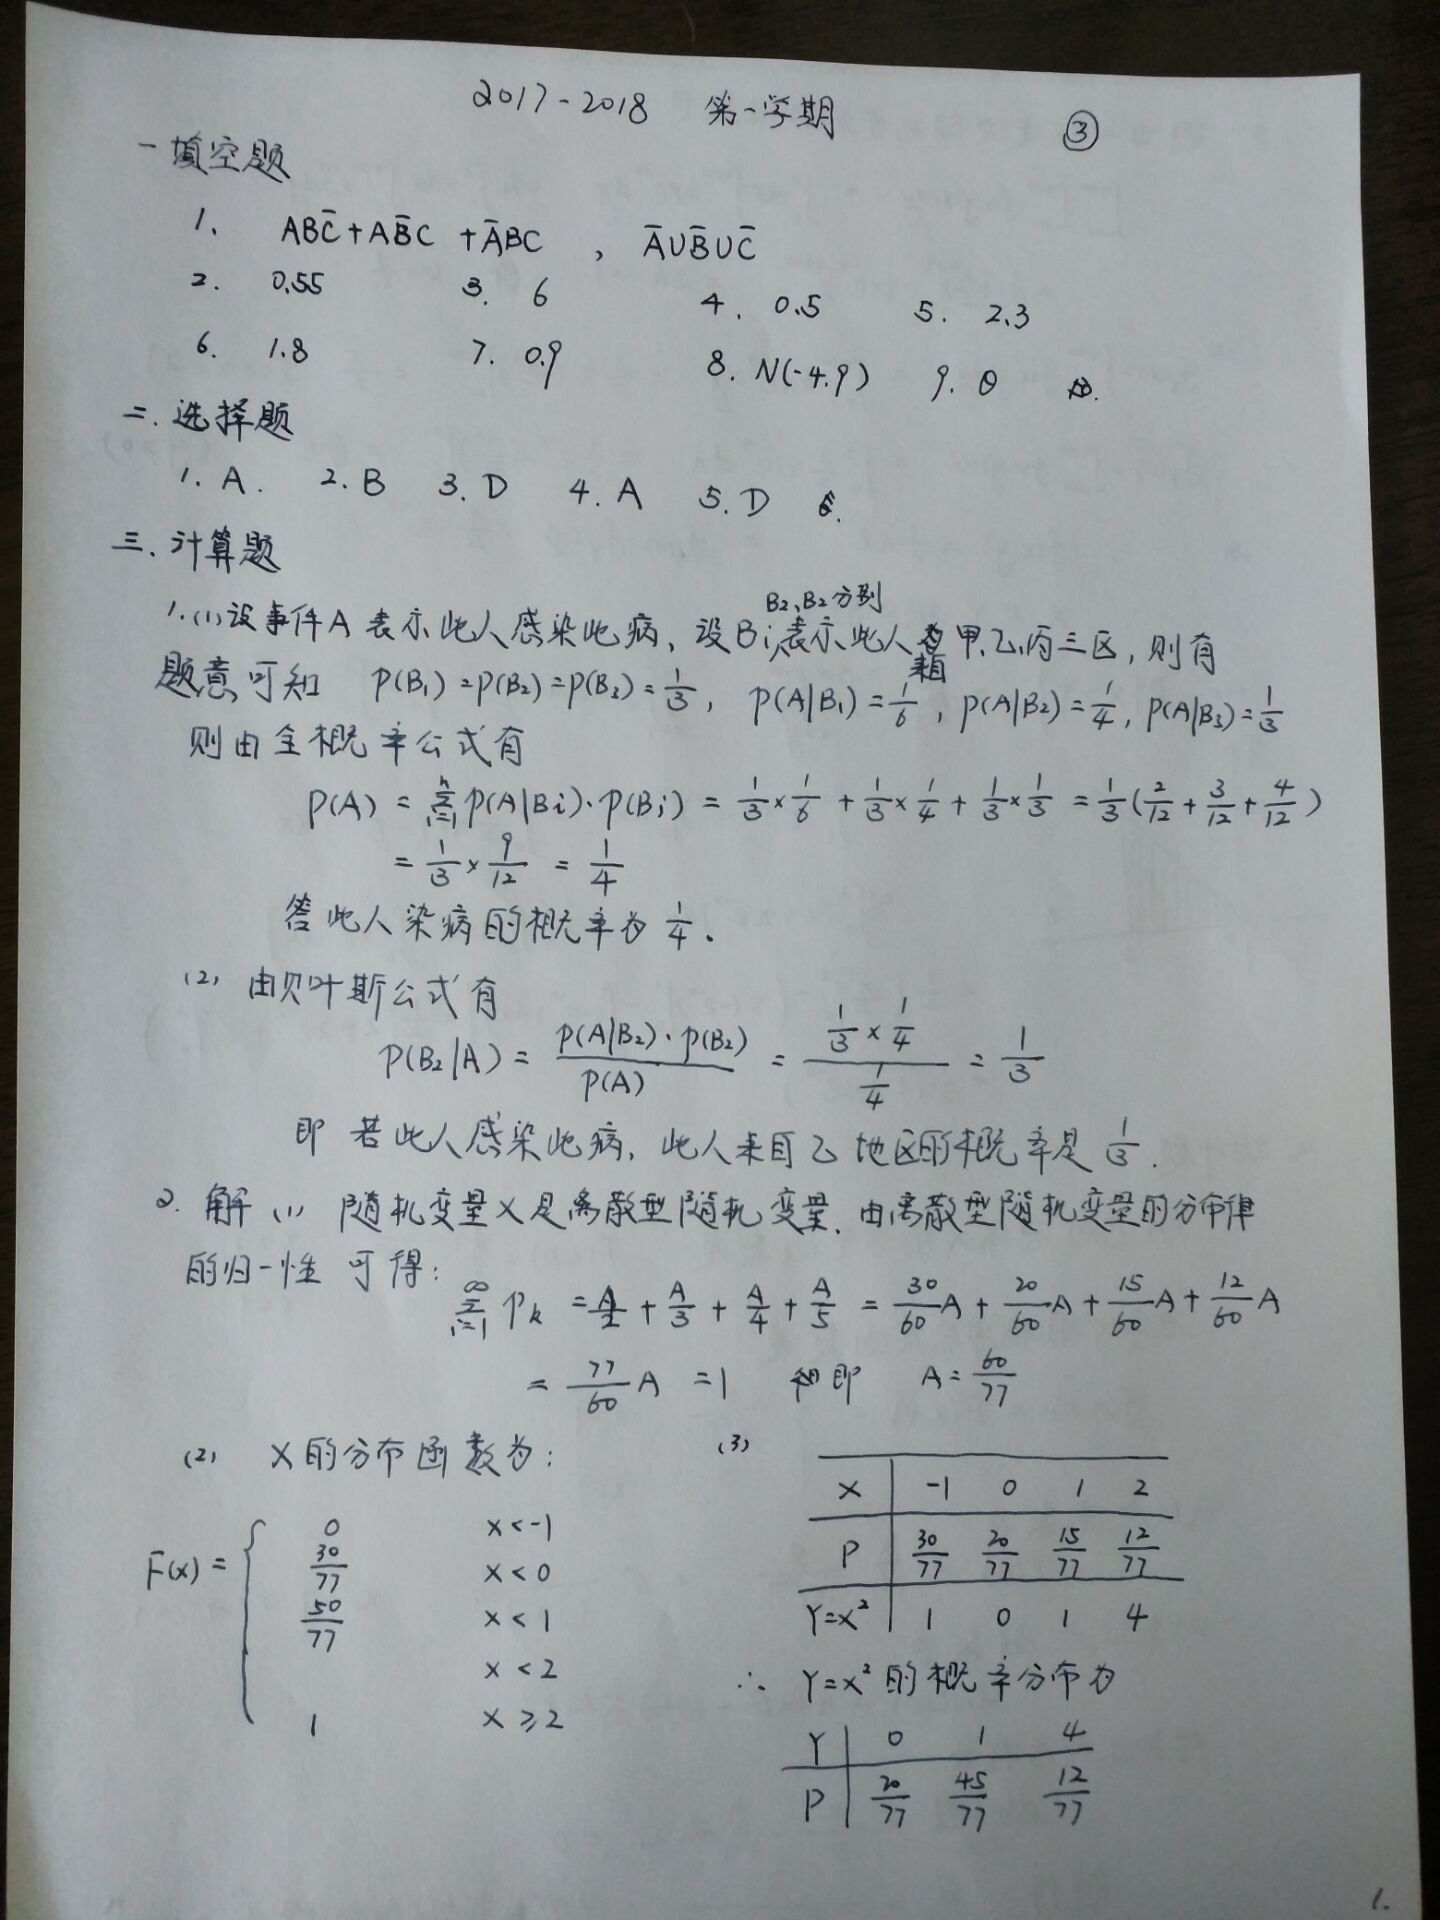 2017-2018 第一学期 ③
一 填空题
1. ABC̄+AB̄C+ĀBC , Ā∪B̄∪C̄
2. 0.55 3. 6 4. 0.5 5. 2.3
6. 1.8 7. 0.9 8. N(-4.9) 9. θ
二. 选择题
1. A. 2. B 3. D 4. A 5. D
三. 计算题
B2、B2分别
1. (1) 设事件A表示此人感染此病, 设Bi,表示此人来自甲,乙,丙三区, 则有
题意可知 P(B₁)=P(B₂)=P(B₃)=1/3, P(A|B₁)=1/6, P(A|B₂)=1/4, P(A|B₃)=1/3
则由全概率公式有
P(A) = Σ_{i=1}^{n} P(A|Bi)·P(Bi) = 1/3×1/6 + 1/3×1/4 + 1/3×1/3 = 1/3(2/12+3/12+4/12)
= 1/3×9/12 = 1/4
答此人染病的概率为 1/4.
(2) 由贝叶斯公式有
P(B₂|A) = P(A|B₂)·P(B₂)/P(A) = (1/3×1/4)/(1/4) = 1/3
即 若此人感染此病, 此人来自乙地区的概率是 1/3.
2. 解 (1) 随机变量X是离散型随机变量. 由离散型随机变量的分布律
的归一性 可得:
Σ_{i=1}^{∞} Pk = A/2 + A/3 + A/4 + A/5 = 30/60 A + 20/60 A + 15/60 A + 12/60 A
= 77/60 A = 1 即 A = 60/77
(2) X的分布函数为:
F(x) = {
0 x<-1
30/77 x<0
50/77 x<1
x<2
1 x≥2
(3)
X -1 0 1 2
P 30/77 20/77 15/77 12/77
Y=x² 1 0 1 4
∴ Y=x²的概率分布为
Y 0 1 4
P 20/77 45/77 12/77
1.